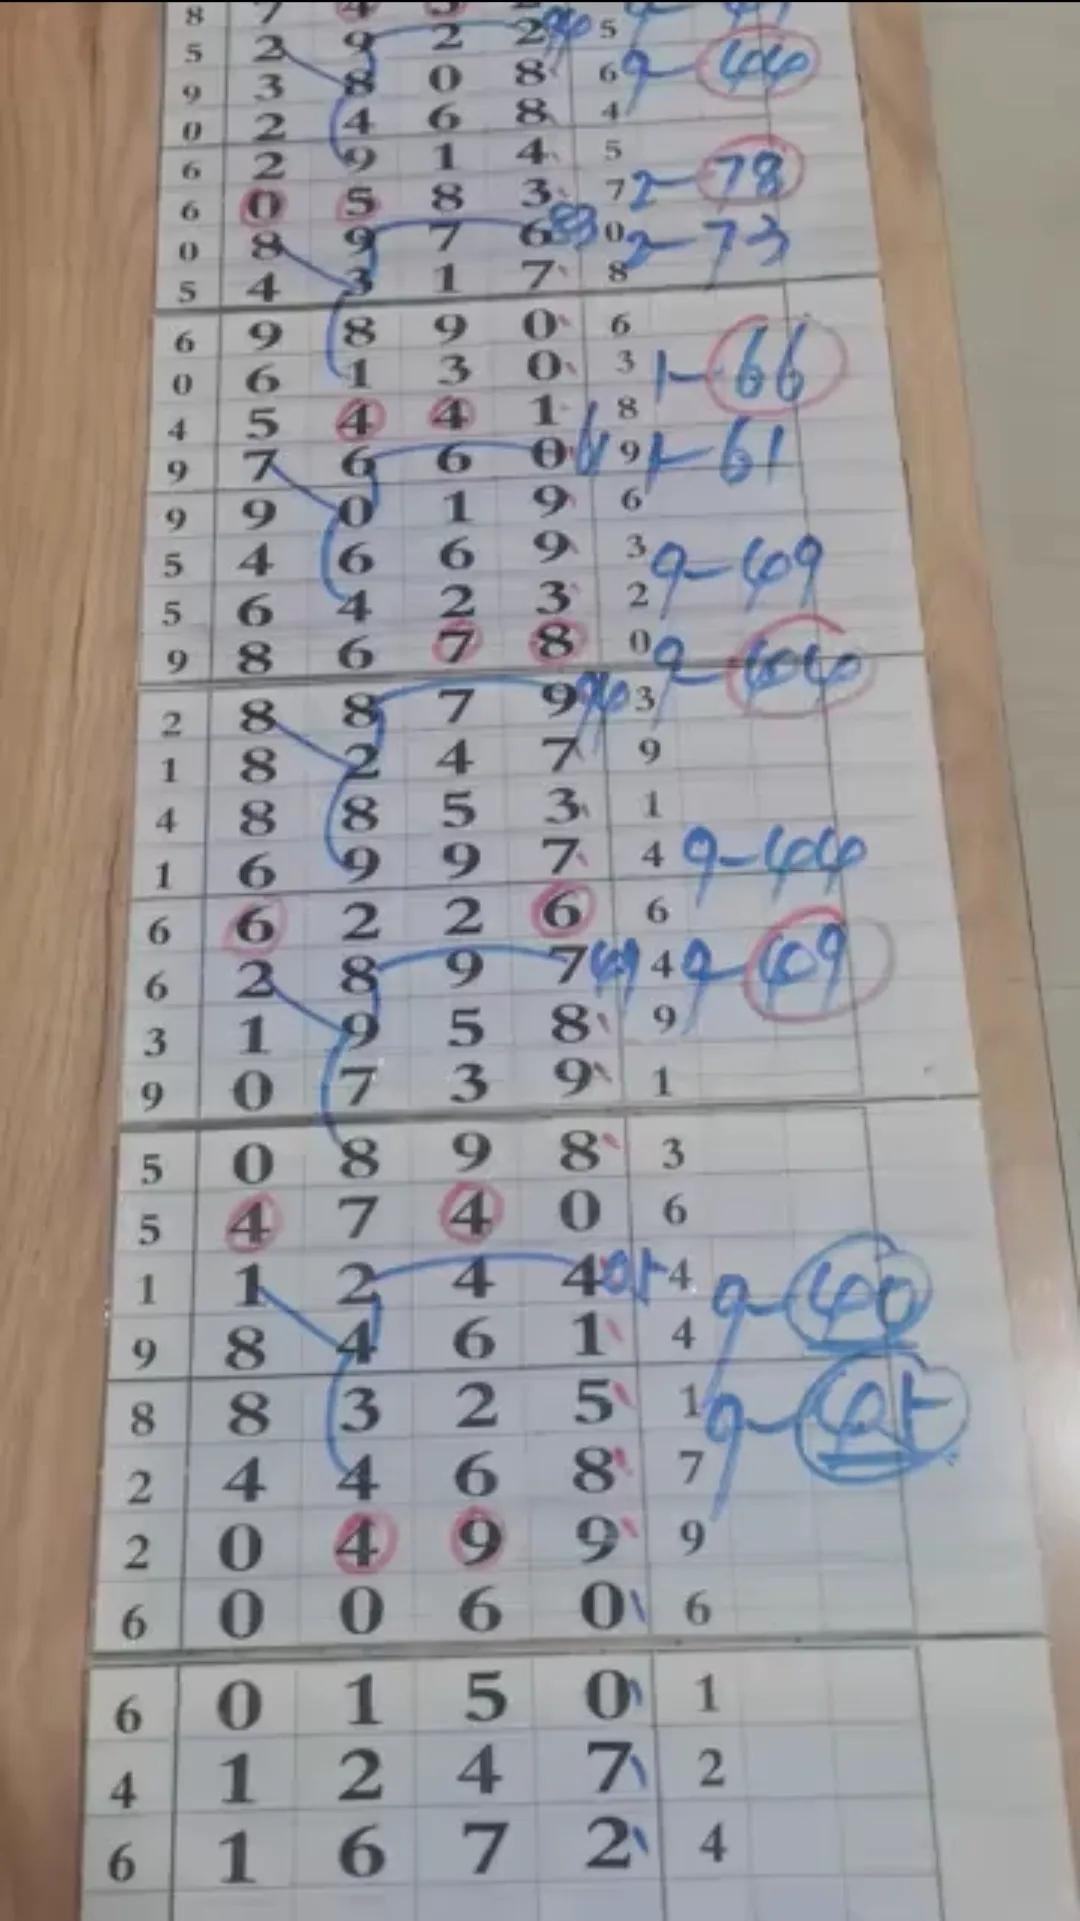 8 7 4
5 2 9 2 2 96 5
9 3 8 0 8 6 9-44
0 2 4 6 8 4
6 2 9 1 4 5
6 0 5 8 3 7 2-78
0 8 9 7 6 83 0 2-73
5 4 3 1 7 8
6 9 8 9 0 6
0 6 1 3 0 3 1-66
4 5 4 4 1 8
9 7 6 6 0 9 1-61
9 9 0 1 9 6
5 4 6 6 9 3 9-49
5 6 4 2 3 2
9 8 6 7 8 0 9-44
2 8 8 7 9 3
1 8 2 4 7 9
4 8 8 5 3 1
1 6 9 9 7 4 9-44
6 6 2 2 6 6
6 2 8 9 7 49 4 9-49
3 1 9 5 8 9
9 0 7 3 9 1
5 0 8 9 8 3
5 4 7 4 0 6
1 1 2 4 4 4 9-40
9 8 4 6 1 4
8 8 3 2 5 1
2 4 4 6 8 7
2 0 4 9 9 9
6 0 0 6 0 6
6 0 1 5 0 1
4 1 2 4 7 2
6 1 6 7 2 4